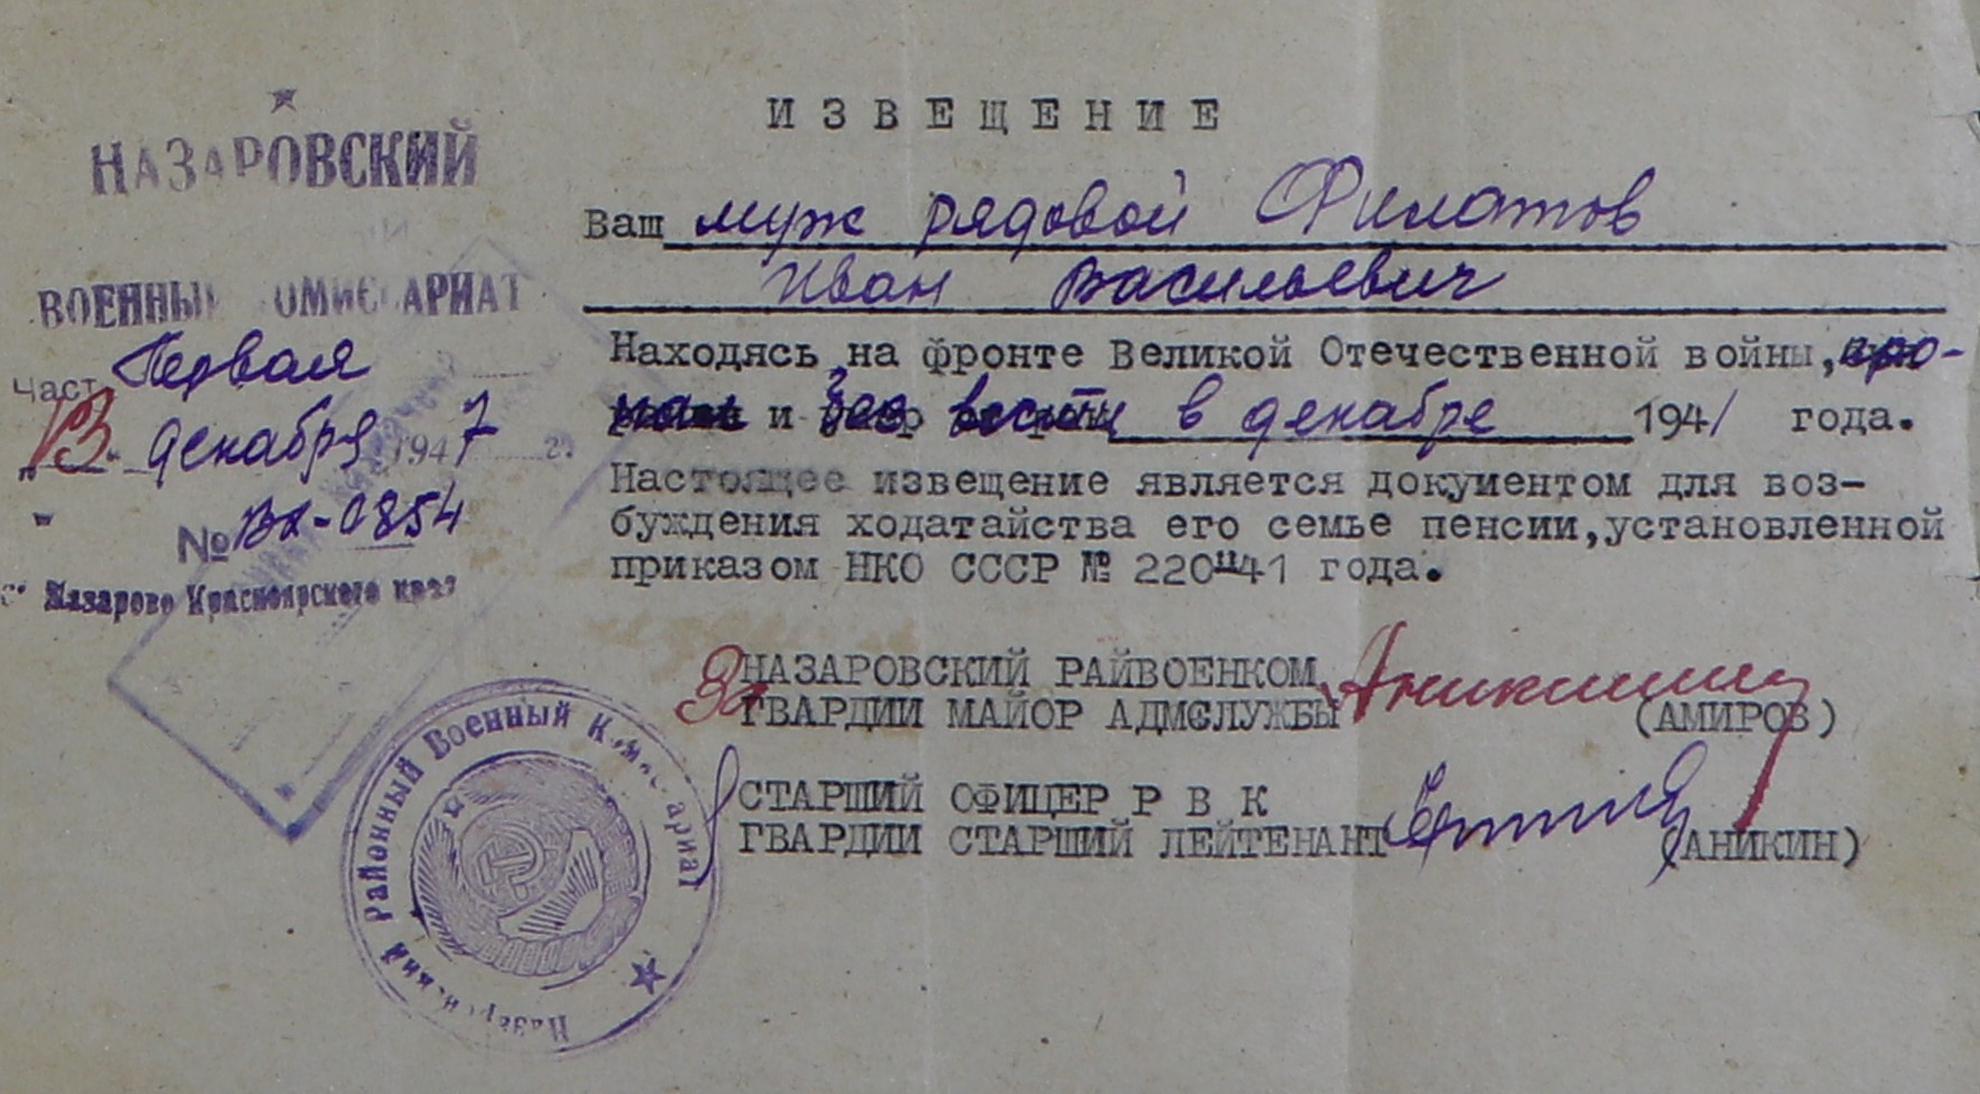 НАЗАРОВСКИЙ
ВОЕННЫЙ КОМИССАРИАТ
Част Первая
"13" декабря 1947 г.
№ ВХ-0854
Назарово Красноярского края
ИЗВЕЩЕНИЕ
Ваш муж рядовой Филатов
Иван Васильевич
Находясь на фронте Великой Отечественной войны, про-
пал и без вести в декабре 1941 года.
Настоящее извещение является документом для воз-
буждения ходатайства его семье пенсии, установленной
приказом НКО СССР № 220"41 года.
За НАЗАРОВСКИЙ РАЙВОЕНКОМ
ГВАРДИИ МАЙОР АДМСЛУЖБЫ (АМИРОВ)
СТАРШИЙ ОФИЦЕР Р В К
ГВАРДИИ СТАРШИЙ ЛЕЙТЕНАНТ (АНИКИН)
Назаровский Районный Военный Комиссариат